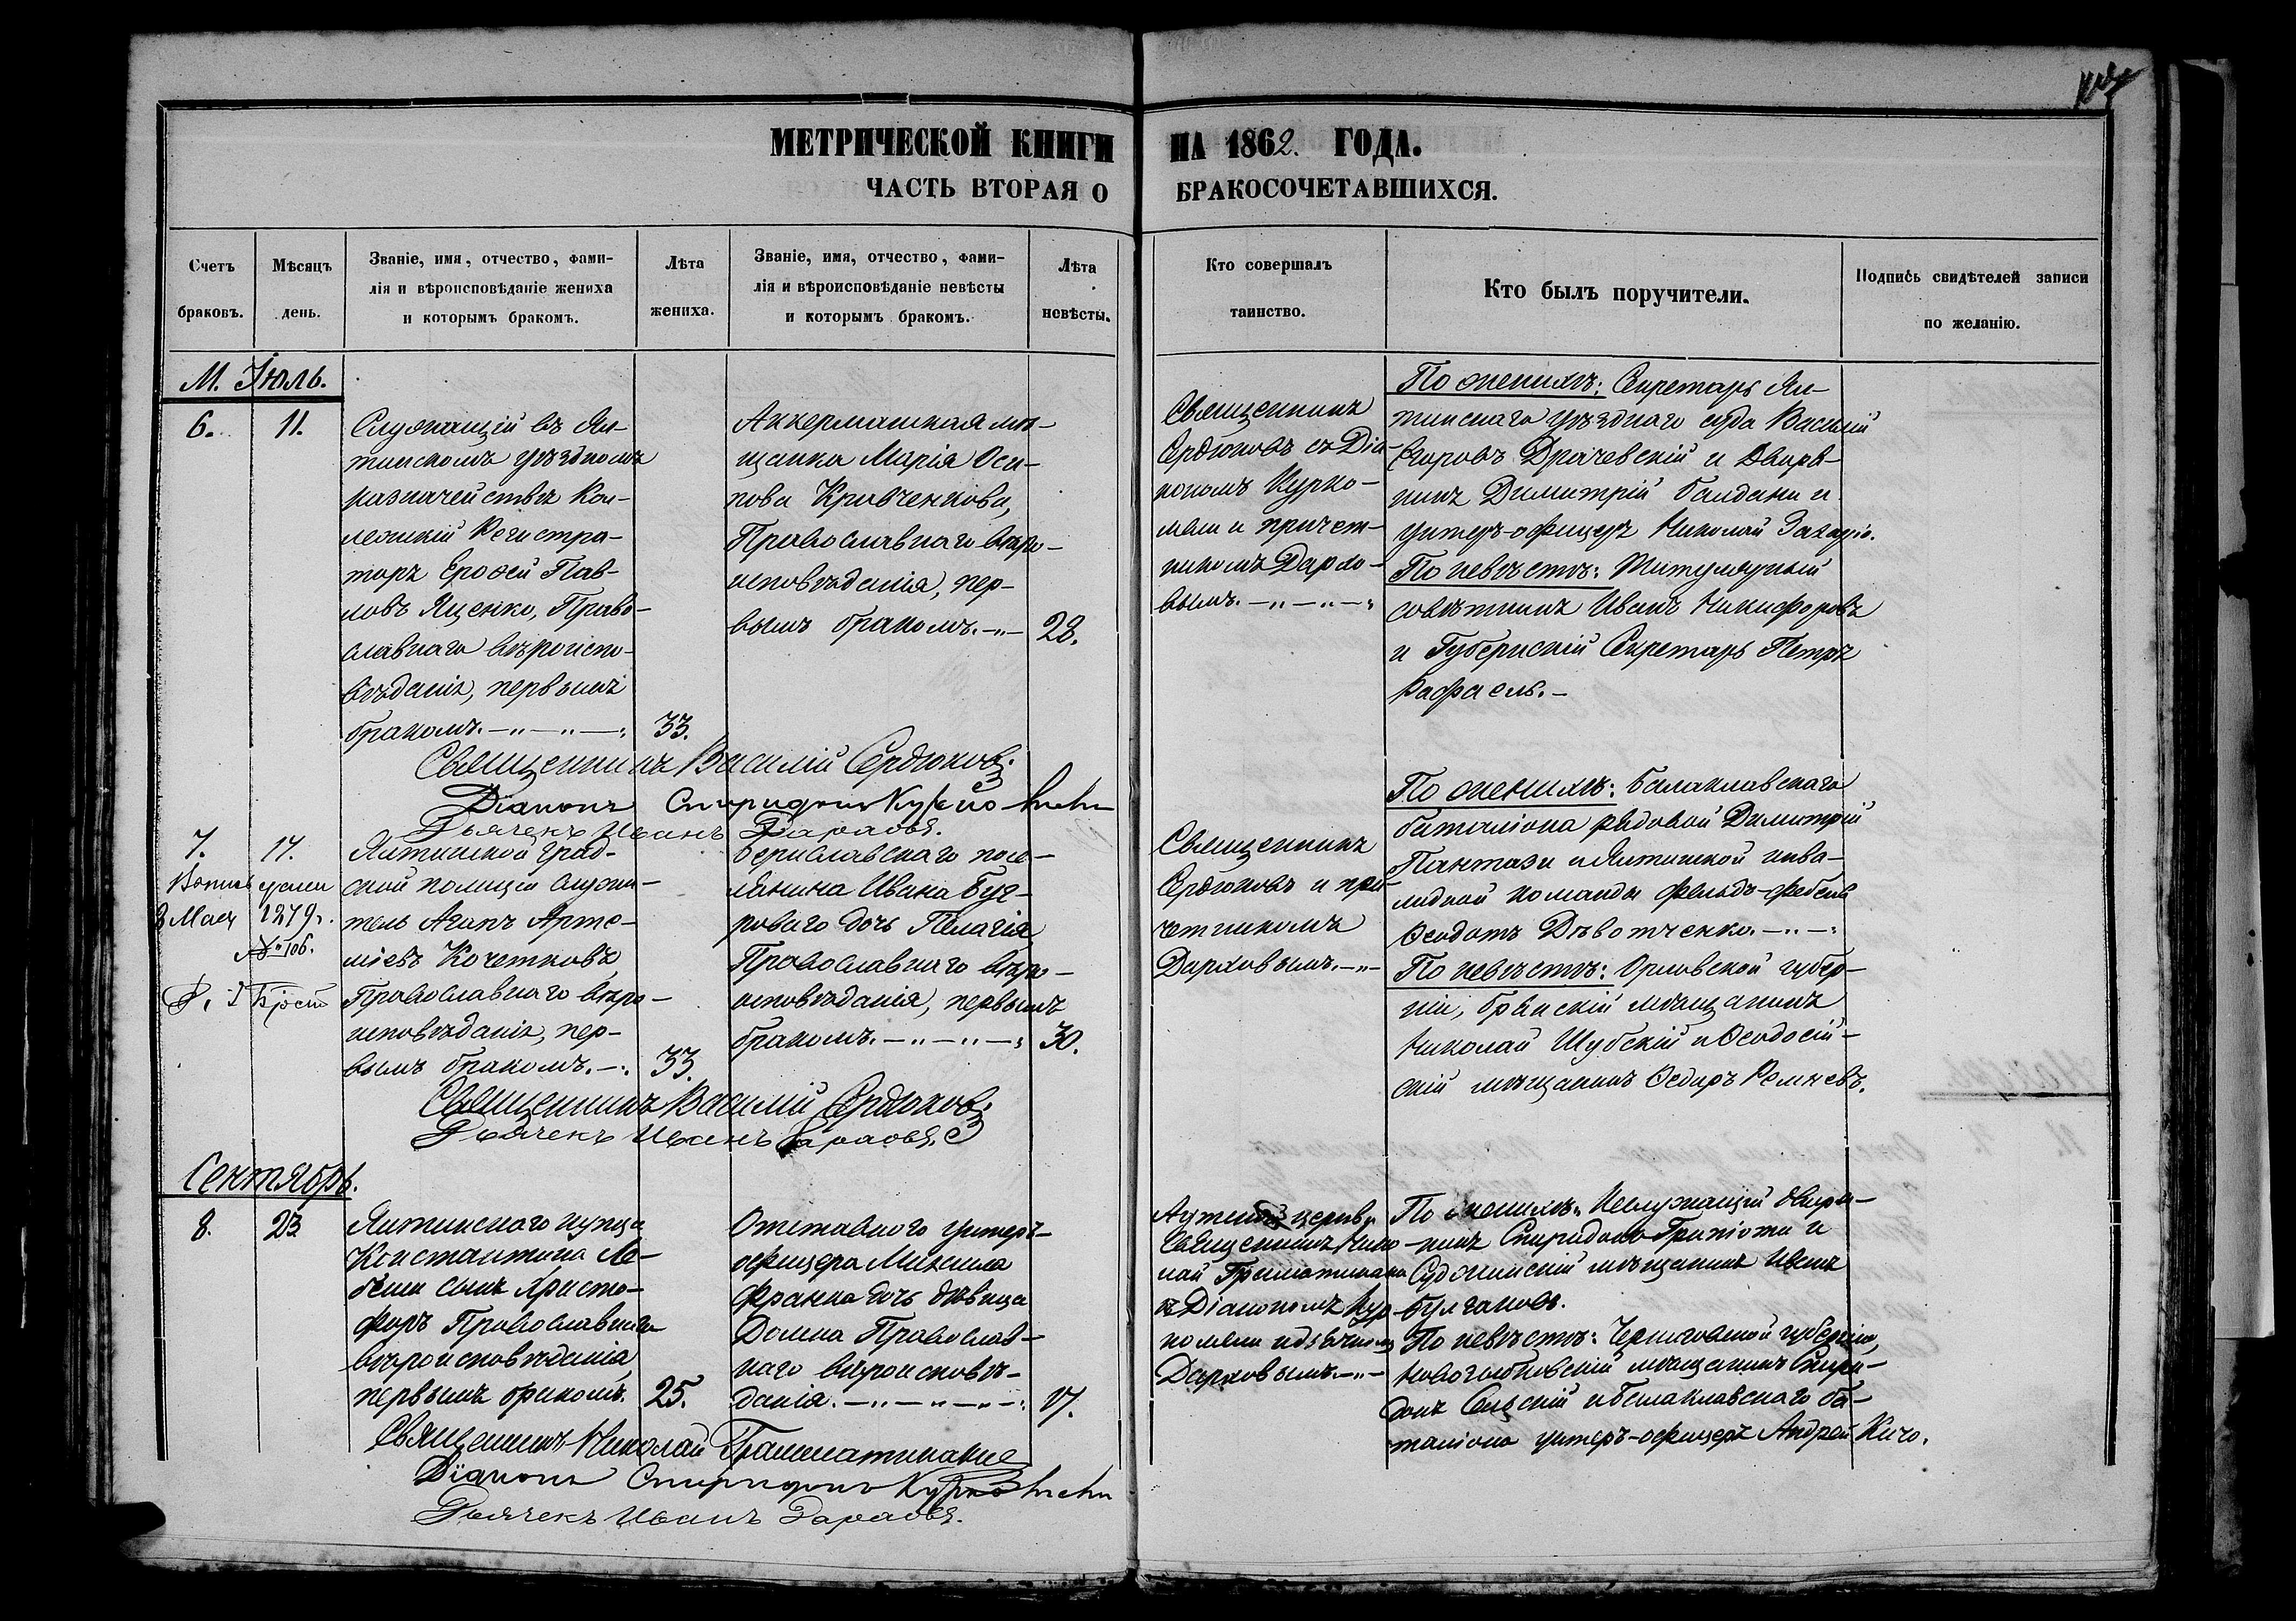 МЕТРИЧЕСКОЙ КНИГИ НА 1862. ГОДА.
ЧАСТЬ ВТОРАЯ О БРАКОСОЧЕТАВШИХСЯ.
Счетъ
браковъ.
Мѣсяцъ
день.
Званіе, имя, отчество, фами-
лія и вѣроисповѣданіе жениха
и которымъ бракомъ.
Лѣта
жениха.
Званіе, имя, отчество, фами-
лія и вѣроисповѣданіе невѣсты
и которымъ бракомъ.
Лѣта
невѣсты.
Кто совершалъ
таинство.
Кто былъ поручители.
Подпись свидѣтелей записи
по желанію.
М. Іюль.
6.
11.
Служащій въ Ял-
тинскомъ уѣздномъ
казначействѣ Кол-
лежскій Регистра-
торъ Ерофей Пав-
ловъ Яценко, Право-
славнаго вѣроиспо-
вѣданія, первымъ
бракомъ.
33.
Аккерманская мѣ-
щанка Марія Оси-
пова Кравченкова,
Православнаго вѣро-
исповѣданія, пер-
вымъ бракомъ.
28.
Священникъ
Сердюковъ съ Діа-
кономъ Курко-
мели и причет-
никомъ
По женихѣ: Секретарь Ял-
тинскаго уѣзднаго суда Василій
Егоровъ Драчевскій и Дворя-
нинъ Димитрій Балдани и
унтеръ-офицеръ Николай
По невѣстѣ: Титулярный
совѣтникъ Иванъ Никифоровъ
и Губернскій Секретарь Петръ
Рафаель.
Священникъ Василій Сердюковъ
Діаконъ Спиридонъ
Дьячекъ Иванъ
7.
17.
1879г.
№ 106.
Ялтинской град-
ской полиціи служи-
тель Агапъ Арте-
міевъ Кочетковъ
Православнаго вѣро-
исповѣданія, пер-
вымъ бракомъ.
33.
Бериславскаго посе-
лянина Ивана
дочь Пелагія
Православнаго вѣро-
исповѣданія, первымъ
бракомъ.
30.
Священникъ
Сердюковъ и при-
четникомъ
По женихѣ: Балаклавскаго
баталіона рядовой Димитрій
Пантази и Ялтинской инва-
лидной команды фельдъ-фебель
Ѳеодотъ
По невѣстѣ: Орловской губер-
ніи, Брянскій мѣщанинъ
Николай Шубскій и Ѳеодосій-
скій мѣщанинъ Ѳедоръ Ремневъ.
Священникъ Василій Сердюковъ
Дьячекъ Иванъ
Сентябрь.
8.
23
Ялтинскаго купца
Константина
сынъ Христо-
форъ Православнаго
вѣроисповѣданія
первымъ бракомъ.
25.
Отставного унтеръ-
офицера Михаила
Франка дочь дѣвица
Домна Православ-
наго вѣроисповѣ-
данія.
17.
церкви
Священникъ Нико-
лай
съ Діакономъ Кур-
комели и дьячкомъ
По женихѣ: Неслужащій дворя-
нинъ Спиридонъ и
мѣщанинъ Иванъ
Булгаковъ.
По невѣстѣ: Черниговской губерніи,
мѣщанинъ Спири-
донъ и Балаклавскаго ба-
таліона унтеръ-офицеръ Андрей Кичо.
Священникъ Николай
Діаконъ Спиридонъ
Дьячекъ Иванъ